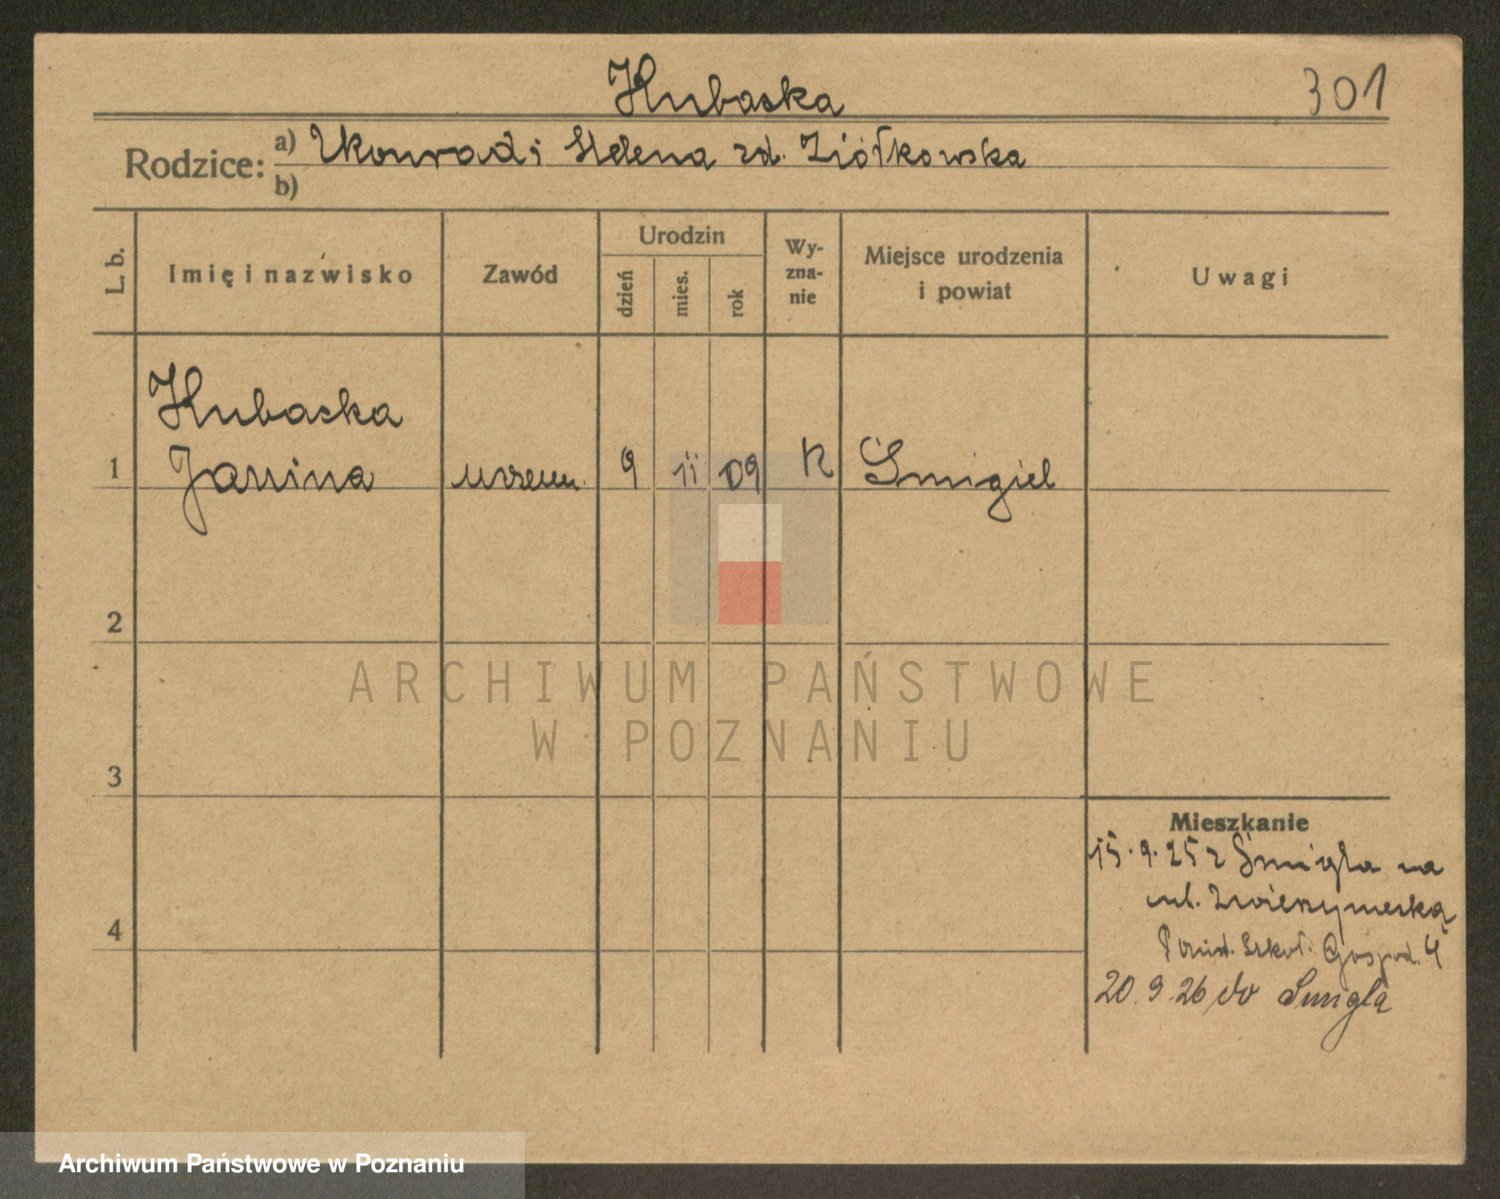 Hubaska
301
Rodzice: a) Konrad i Helena zd. Ziółkowska
b)
L. b.
Imię i nazwisko
Zawód
Urodzin
dzień
mies.
rok
Wy-
zna-
nie
Miejsce urodzenia
i powiat
Uwagi
Hubaska
1 Janina uczenn. 9 11 09 K Śmigiel
2
3
4
Mieszkanie
15.9.25 z Śmigla na
ul. Zwierzyniecką
Szkoł. Gospod. 4
20.9.26 do Śmigla
ARCHIWUM PAŃSTWOWE
W POZNANIU
Archiwum Państwowe w Poznaniu